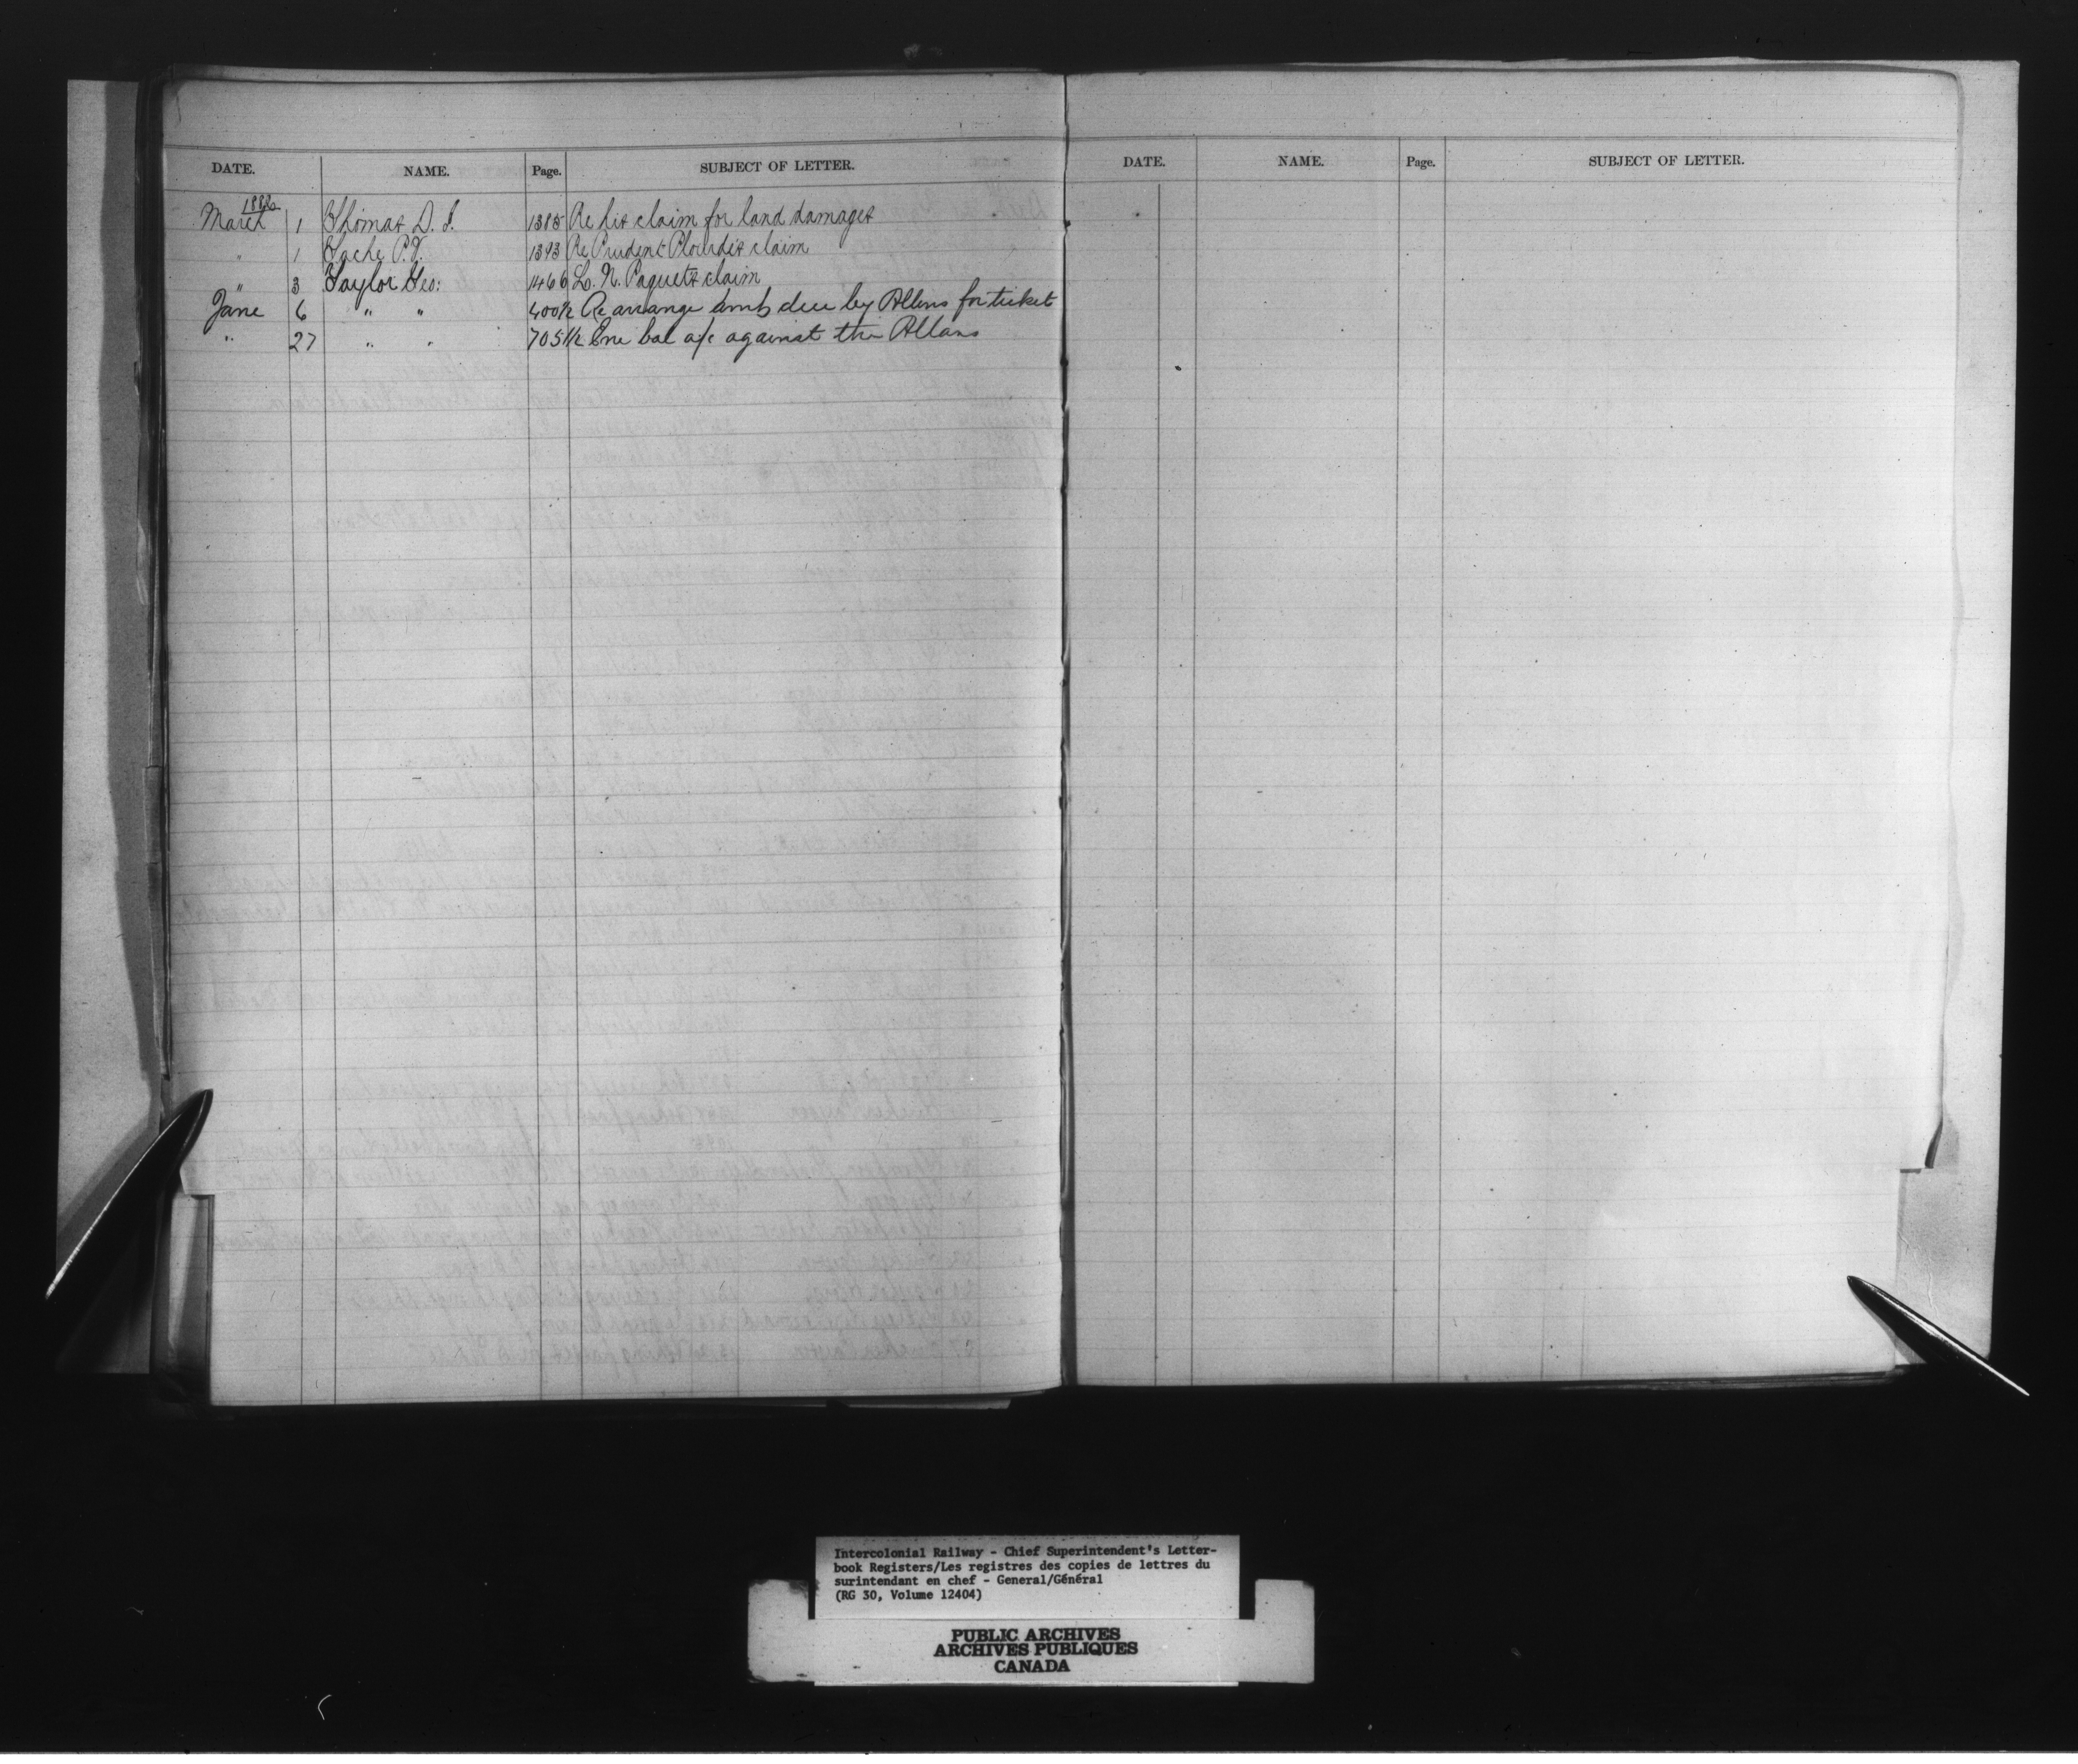 DATE. NAME. Page. SUBJECT OF LETTER.
March 1 Thomas D. J. 1385 Re his claim for land damages
" 1 Tache P.V. 1393 Re Prudent Plourde's claim
" 3 Taylor Geo: 1466 L. N. Paquets claim
June 6 " " 400½ Re arrange amts due by Allans for ticket
" 27 " " 705½ bal a/c against the Allans
DATE. NAME. Page. SUBJECT OF LETTER.
Intercolonial Railway - Chief Superintendent's Letter-
book Registers/Les registres des copies de lettres du
surintendant en chef - General/Général
(RG 30, Volume 12404)
PUBLIC ARCHIVES
ARCHIVES PUBLIQUES
CANADA